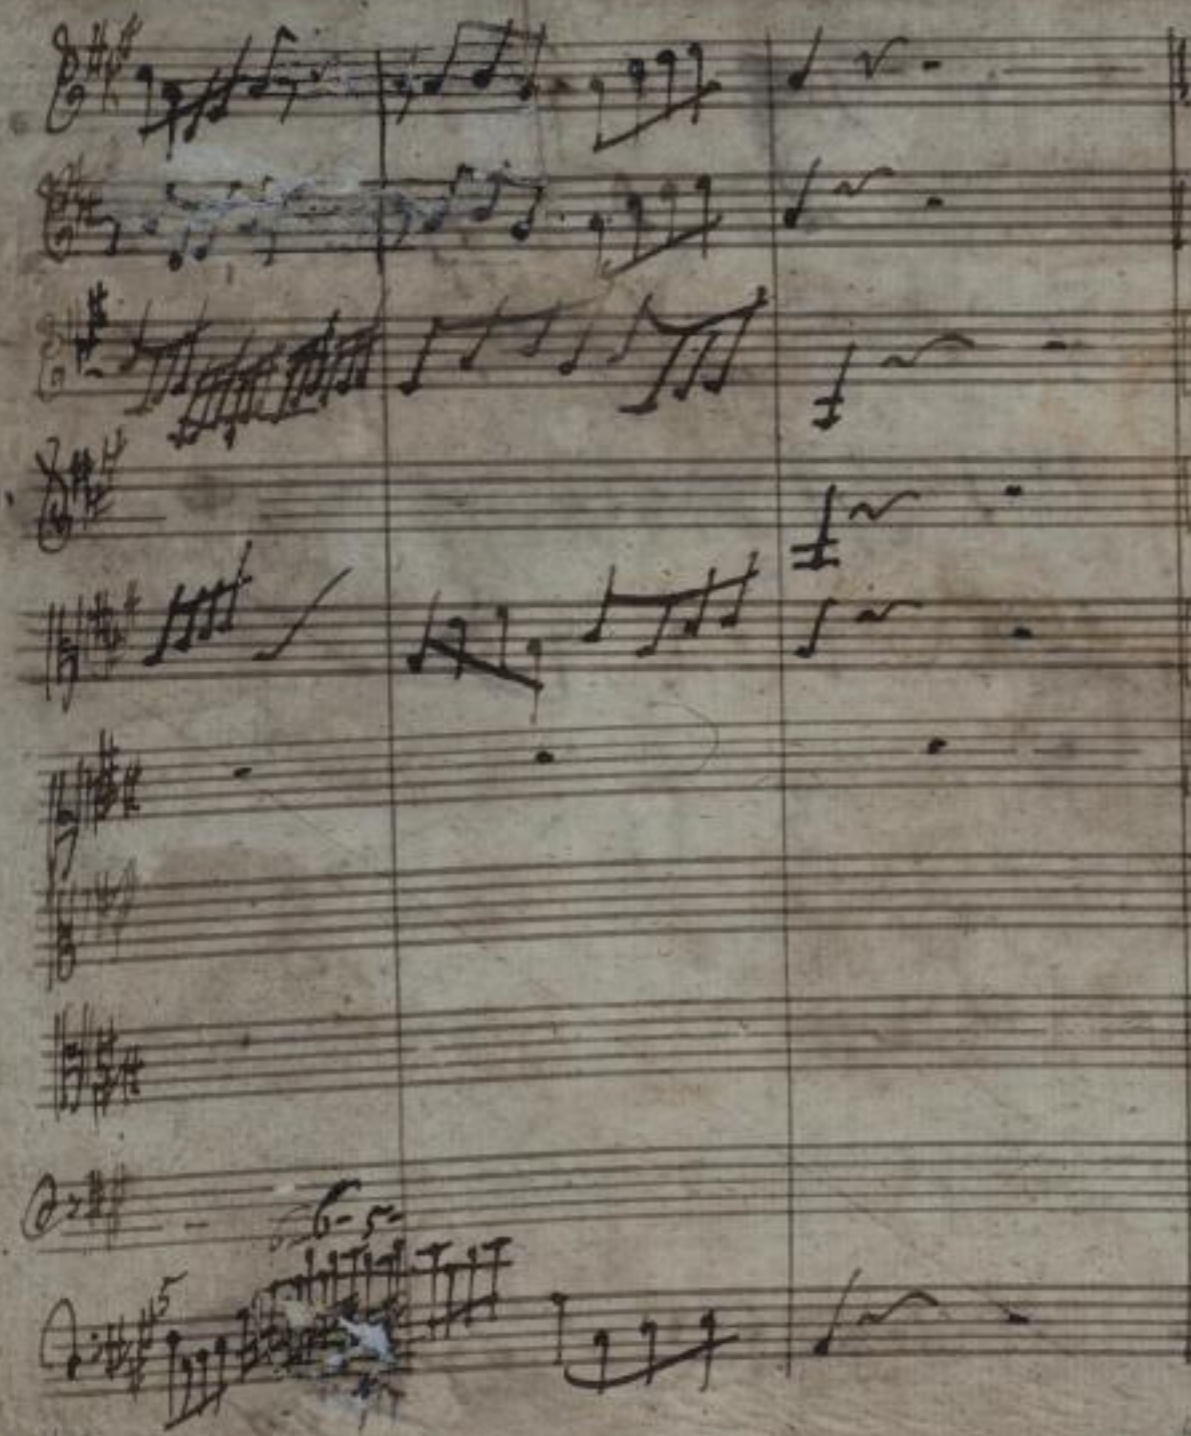 6- 5-
5